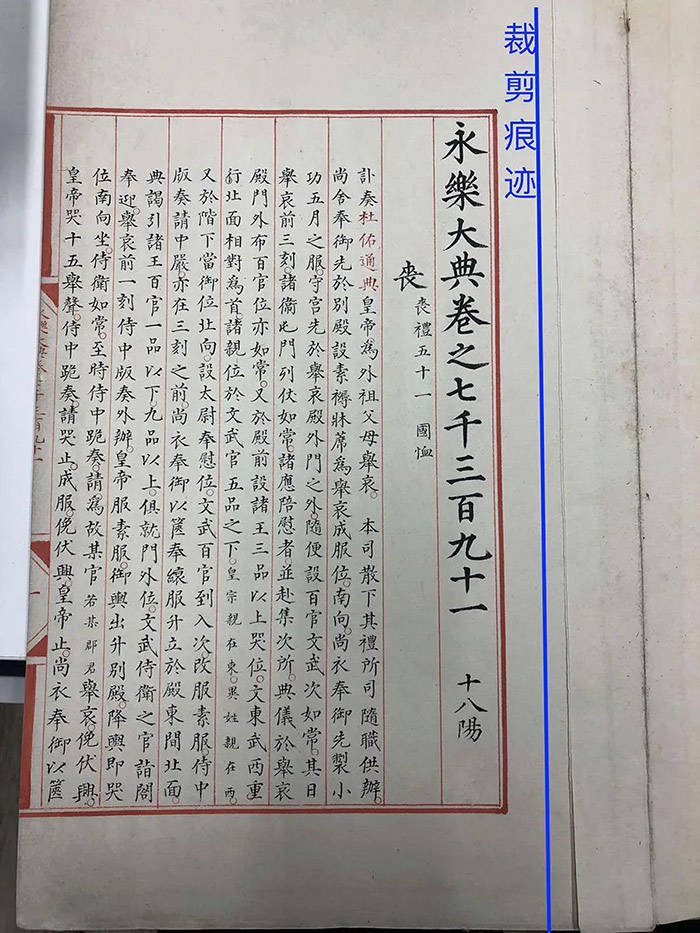 裁剪痕迹
永樂大典卷之七千三百九十一 十八陽
喪 喪禮五十一 國恤
訃奏杜佑通典皇帝爲外祖父母舉哀。本司散下其禮所司隨職供辦。
尚舍奉御先於別殿設素褥牀席爲舉哀成服位。南向。尚衣奉御先製小
功五月之服。守宮先於舉哀殿外門之外。隨便設百官文武次如常。其日
舉哀前三刻。諸衛屯門列仗如常。諸應陪慰者並赴集次所。典儀於舉哀
殿門外布百官位亦如常。又於殿前設諸王三品以上哭位。文東武西重
行北面相對爲首。諸親位於文武官五品之下。皇宗親在東。異姓親在西。
又於階下當御位北向。設太尉奉慰位。文武百官到入次。改服素服。侍中
版奏請中嚴亦在三刻之前尚衣奉御以篋奉縗服升立於殿東間北面。
典謁引諸王百官一品以下九品以上。俱就門外位。文武侍衛之官詣閤
奉迎。舉哀前一刻侍中版奏外辦。皇帝服素服。御輿出升別殿。降輿即哭
位南向坐。侍衛如常。至時侍中跪奏。請爲故某官 若某郡君 舉哀。俛伏興。
皇帝哭十五舉聲。侍中跪奏。請哭止。成服。俛伏興。皇帝止。尚衣奉御以篋